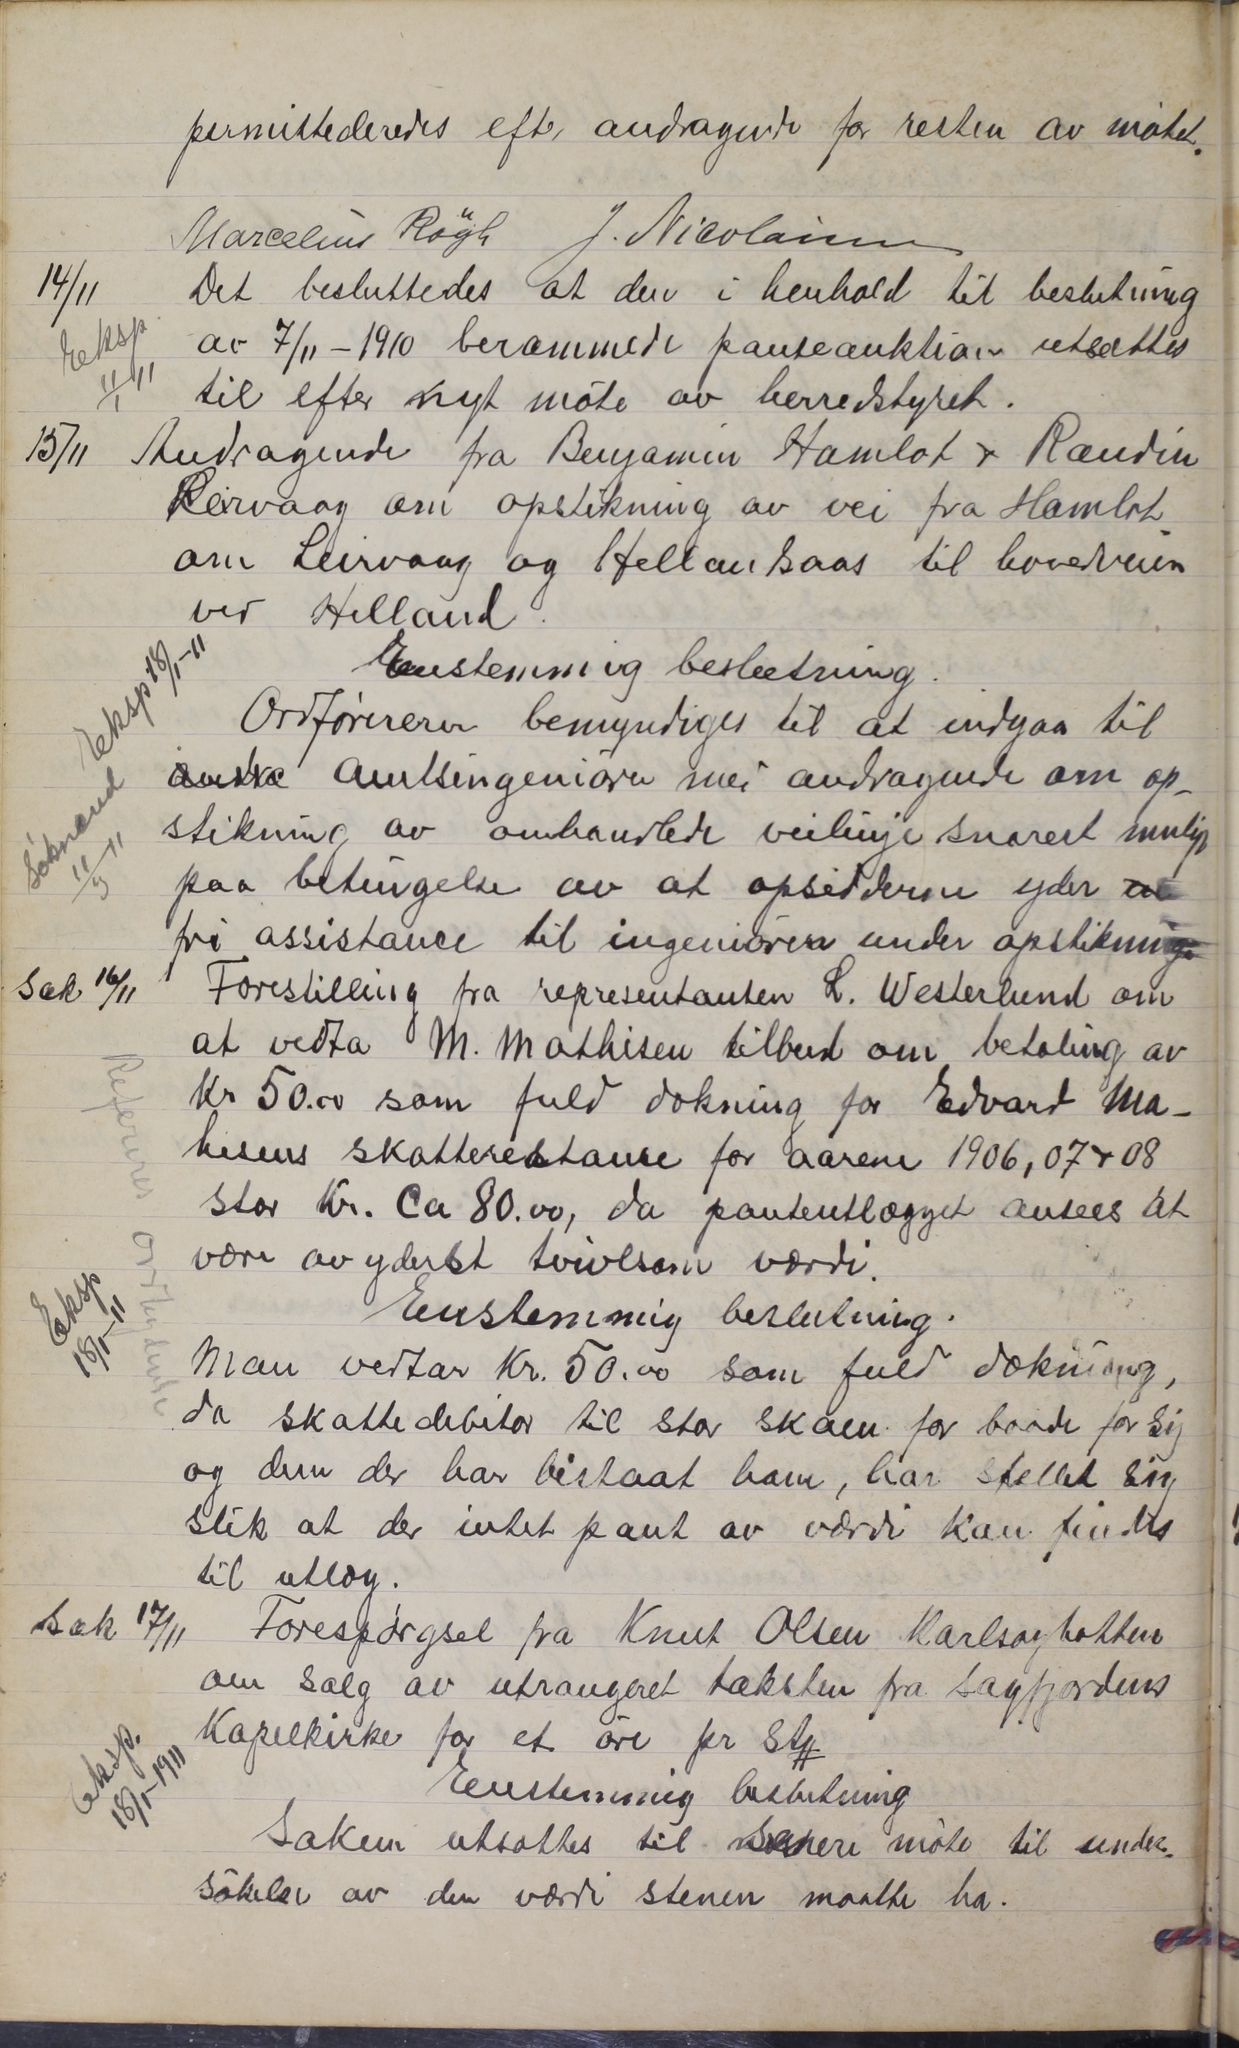 permittederedes eftr andragende for resten av mötet.
Marcelius Rögh J. Nicolaisen
14/11 Det besluttedes at den i henhold til beslutning
Eksp. 11/1 11
av 7/11 – 1910 berammede panteauktion utsættes
til efter nyt möte av herredstyret.
15/11 Andragende fra Benjamin Hamlot & Randin
Leirvaag om opstikning av vei fra Hamlot
om Leirvaag og Hellandsaas til hovedveien
ved Helland.
Eksp 18/1-11
Enstemmig beslutning.
Ordföreren bemyndiges til at indgaa til
amtsingeniören med andragende om op-
Söknand 11/5 11
stikning av omhandlede veilinje snarest mulig
paa betingelse av at opsidderne yder
fri assistance til ingeniören under opstikning.
Sak 16/11 Forestilling fra representanten L. Westerlund om
at vedta M. Mathisen tilbud om betaling av
Kr 50.00 som fuld dækning for Edvard Ma-
hisens skatterestance for aarene 1906, 07 & 08
stor Kr. Ca 80.00, da panteutlægget ansees at
være av yderst tvivlsom værdi.
Refereres
Eksp 18/1-11
Enstemmig beslutning.
Man vedtar Kr. 50.00 som fuld dækning,
da skattedebitor til stor skam for baade for sig
og dem der har bistaat ham, har stellet sig
slik at der intet pant av værdi kan findes
til utlæg.
Sak 17/11 Forespörgsel fra Knut Olsen Karlsøybotten
om salg av utrangeret taksten fra Sagfjordens
Kapelkirke for et öre pr stk
Eksp. 18/1-1911
Enstemmig beslutning
Saken utsættes til senere möte til under-
sökelse av den værdi stenen maatte ha.